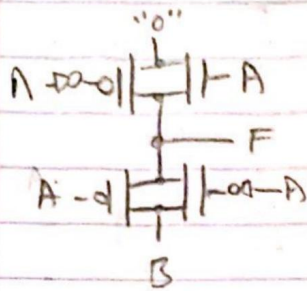 "0"
A A
F
A A
B